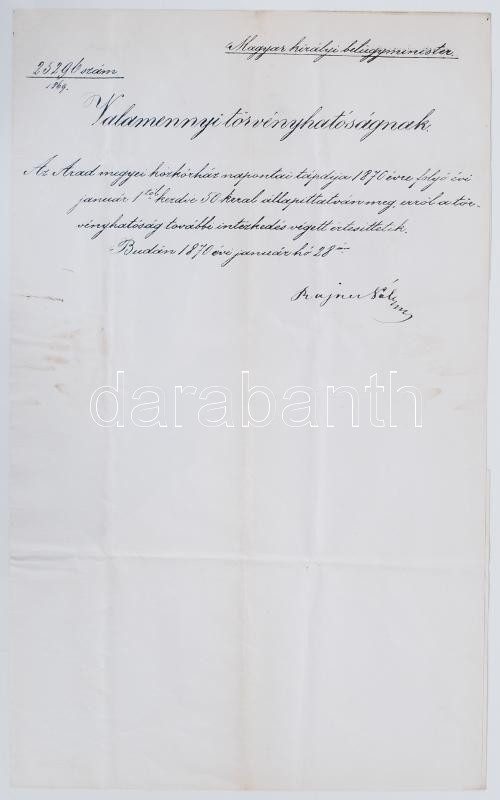 Magyar királyi belügyminister.
25296 szám
1869.
Valamennyi törvényhatóságnak.
Az Arad megyei közkórház napontai tápdija 1870 évre folyó évi
január 1től kezdve 50 kral állapittatván meg, erről a tör-
vényhatóság további intézkedés végett értesittetik.
Budán 1870 évi január hó 28án
Rajner Pál
darabanth